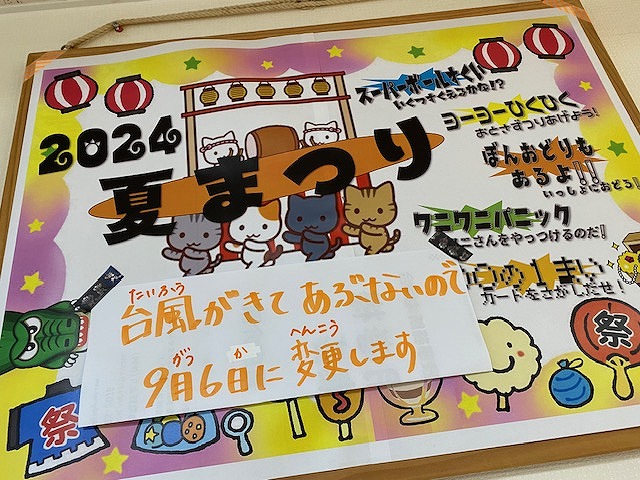 2024
夏まつり
スーパーボールすくい
いくつすくえるかな!?
ヨーヨーひくひく
おとさずつりあげよう!
ぼんおどりも
あるよ!!
いっしょにおどろ
ワニワニパニック
ニさんをやっつけるのだ!
カードをさがしだせ!
たいふう
台風がきてあぶないので
がつ か へんこう
9月6日に変更します
祭
祭